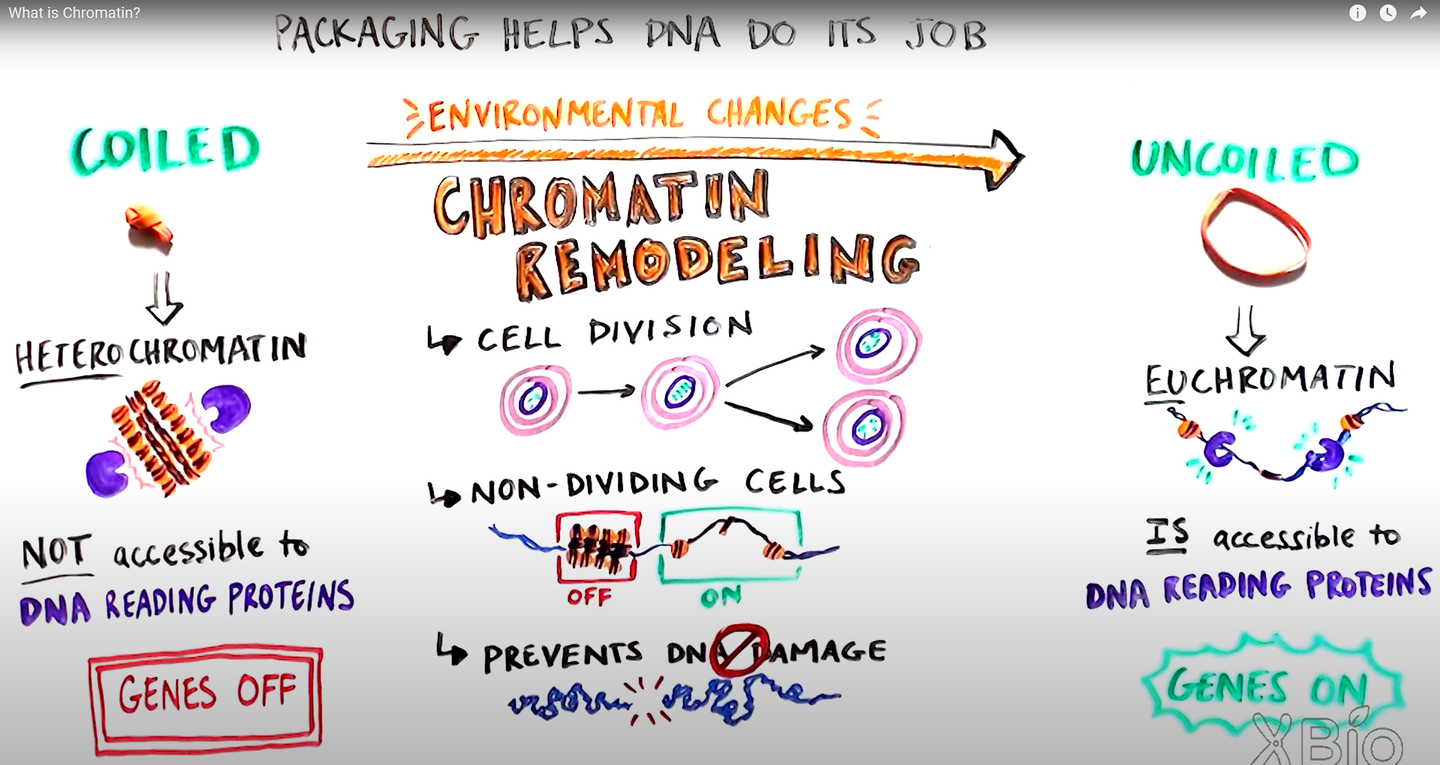 What is Chromatin?
PACKAGING HELPS DNA DO ITS JOB
COILED
HETEROCHROMATIN
NOT accessible to
DNA READING PROTEINS
GENES OFF
ENVIRONMENTAL CHANGES
CHROMATIN
REMODELING
CELL DIVISION
NON-DIVIDING CELLS
OFF
ON
PREVENTS DNA DAMAGE
UNCOILED
EUCHROMATIN
IS accessible to
DNA READING PROTEINS
GENES ON
XBio